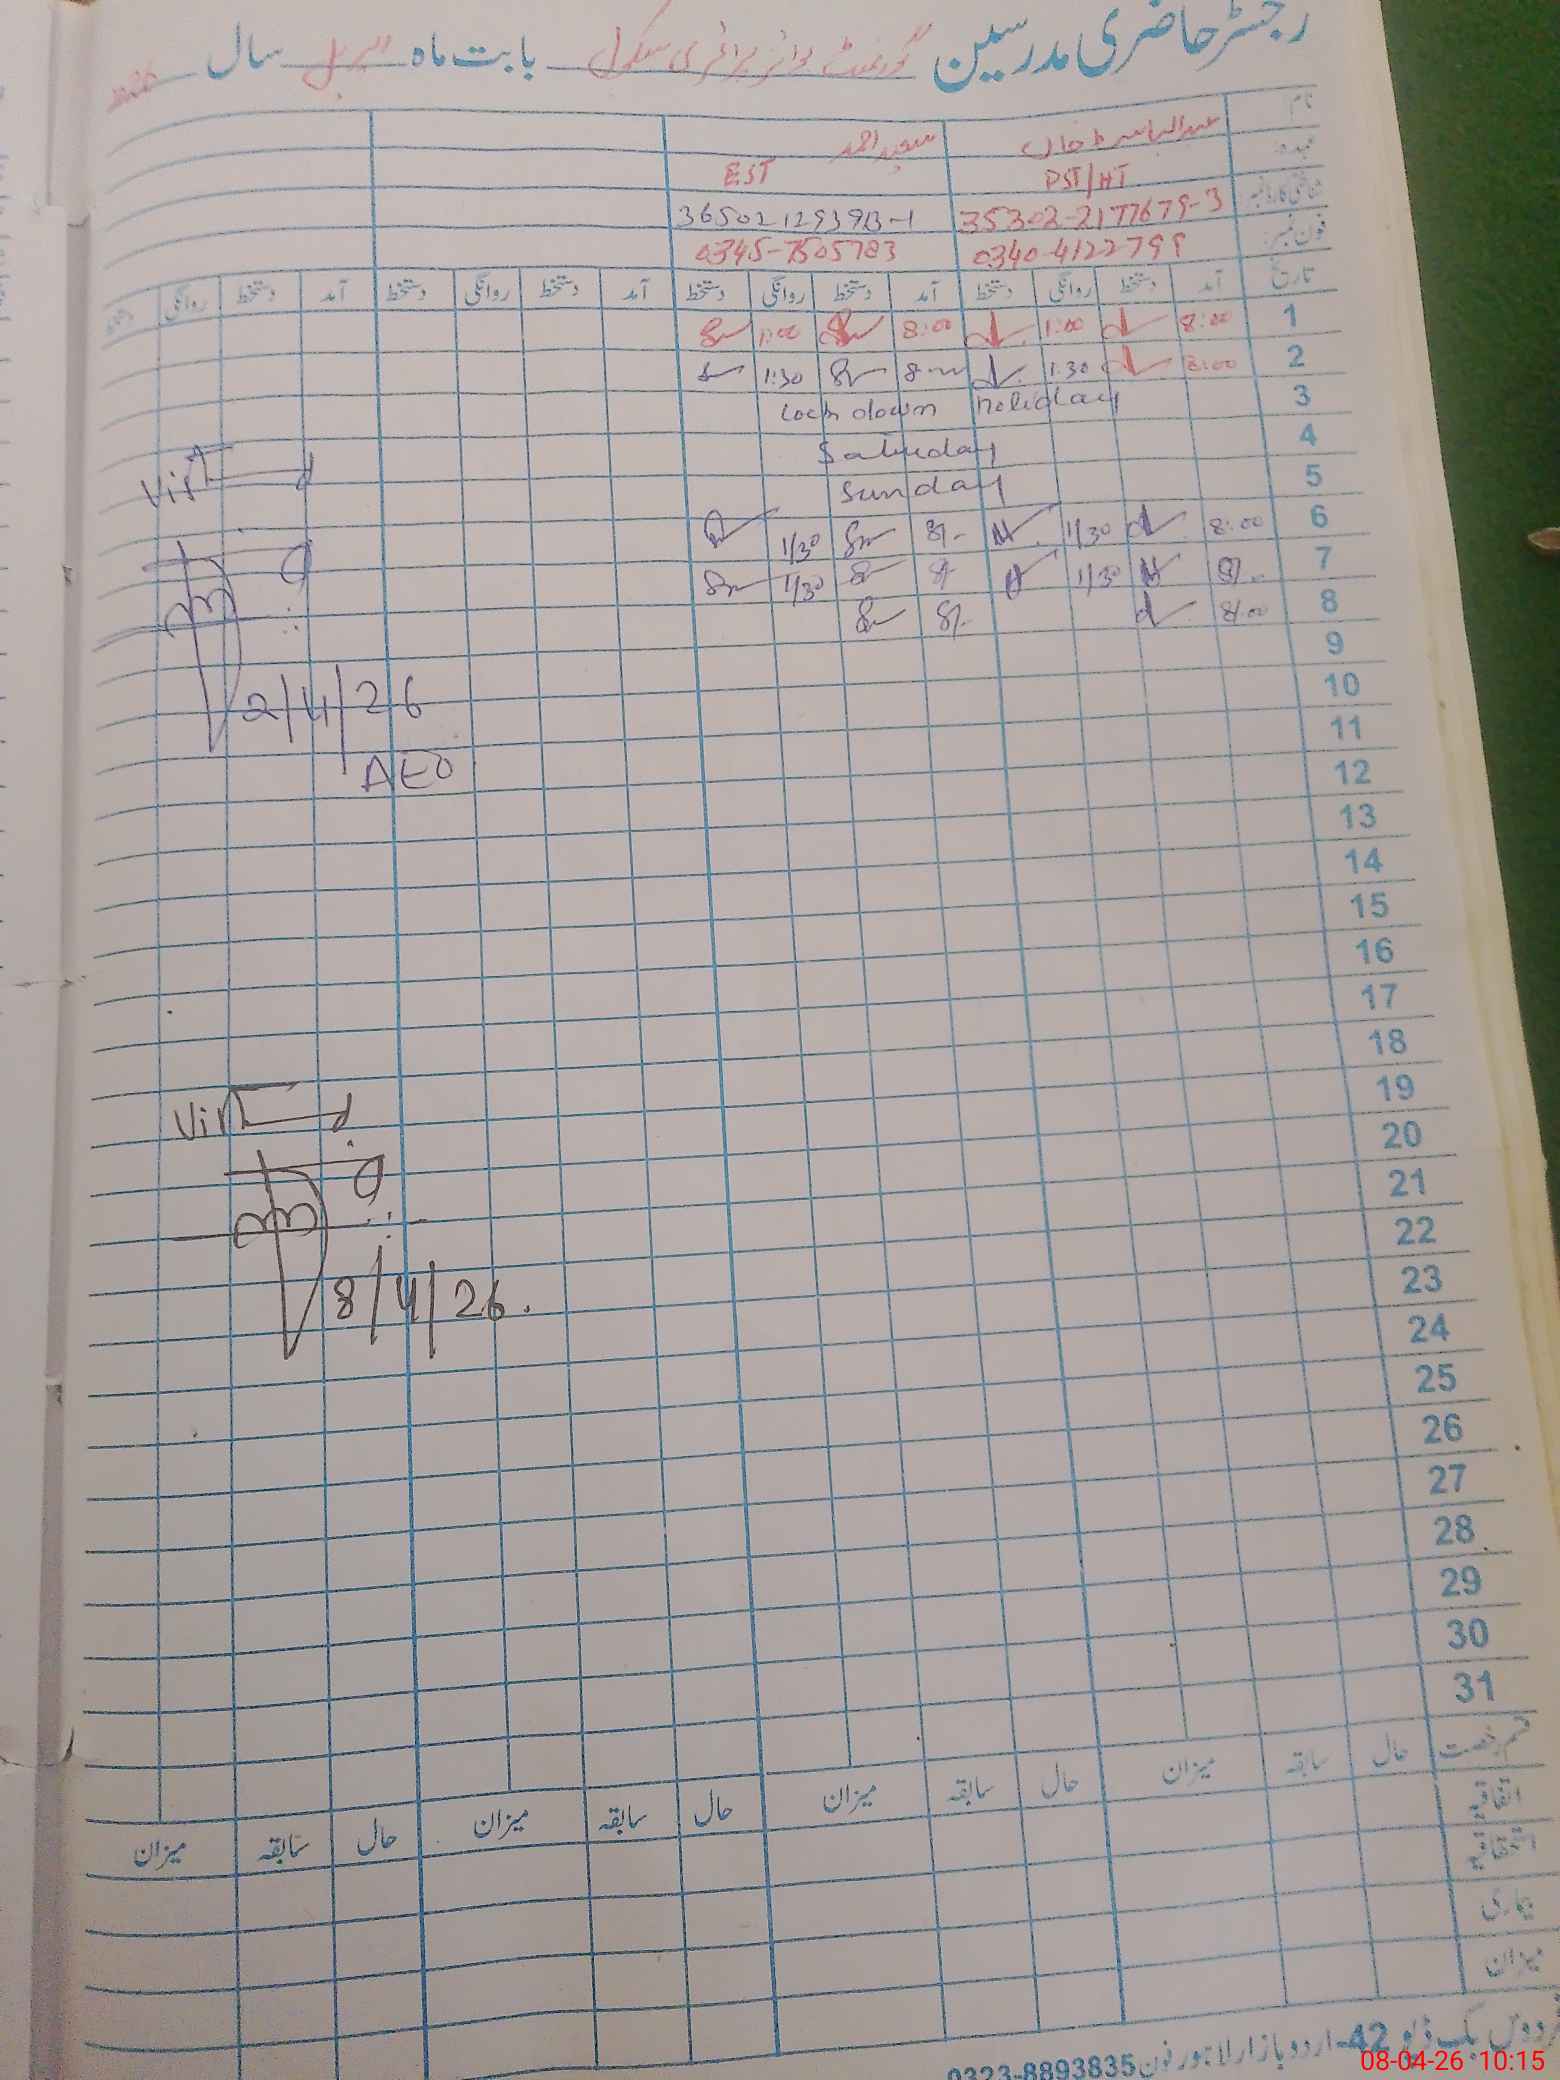 رجسٹر حاضری مدرسین گورنمنٹ بوائز پرائمری سکول بابت ماہ اپریل سال
نام عبدالباسط خاں سعید احمد
عہدہ PST/HT EST
شناختی کارڈ نمبر 35302-2177679-3
فون نمبر: 0340-4122799 0345-7505783
تاریخ آمد دستخط روانگی دستخط آمد دستخط روانگی دستخط آمد دستخط روانگی دستخط آمد دستخط روانگی دستخط
1 8:00 1:00 8:00 1:00
2 8:00 1:30 8 1:30
3 Lock down holiday
4 Saturday
5 Sunday
6 8:00 1/30 8/- 1/30
7 8/- 1/30 8/- 1/30
8 8/:00 8/-
9
10
11
12
13
14
15
16
17
18
19
20
21
22
23
24
25
26
27
28
29
30
31
Visit
2/4/26
AEO
Visit
8/4/26.
قسم رخصت حال سابقہ میزان حال سابقہ میزان حال سابقہ میزان حال سابقہ میزان
اتفاقیہ
استحقاقیہ
بیماری
میزان
فردوس بک ڈپو 42-اردو بازار لاہور فون 0323-8893835
08-04-26 10:15